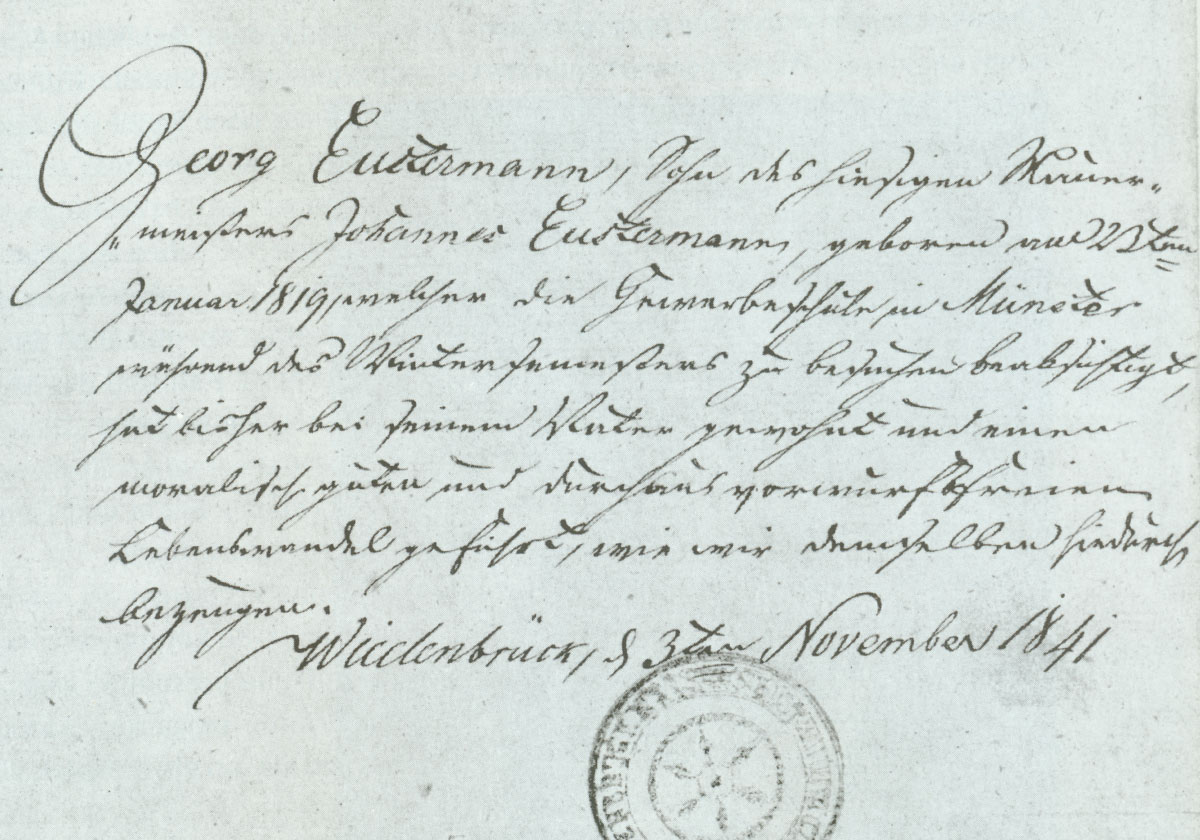 Georg Eustermann, Sohn des hiesigen Maurer-
meisters Johannes Eustermann, geboren am 23ten
Januar 1819, welcher die Gewerbeschule in Münster
während des Wintersemesters zu besuchen beabsichtigt,
hat bisher bei seinem Vater gewohnt und einen
moralisch guten und durchaus vorwurfsfreien
Lebenswandel geführt, wie wir demselben hiedurch
bezeugen.
Wiedenbrück, d 3ten November 1841